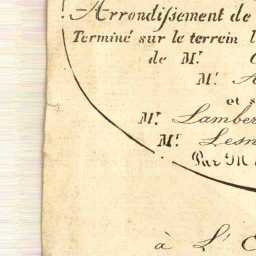 Arrondissement de
Terminé sur le terrein
de Mr.
Mr.
et
Mr. Lamber
Mr. Lesn
Par M
à L'